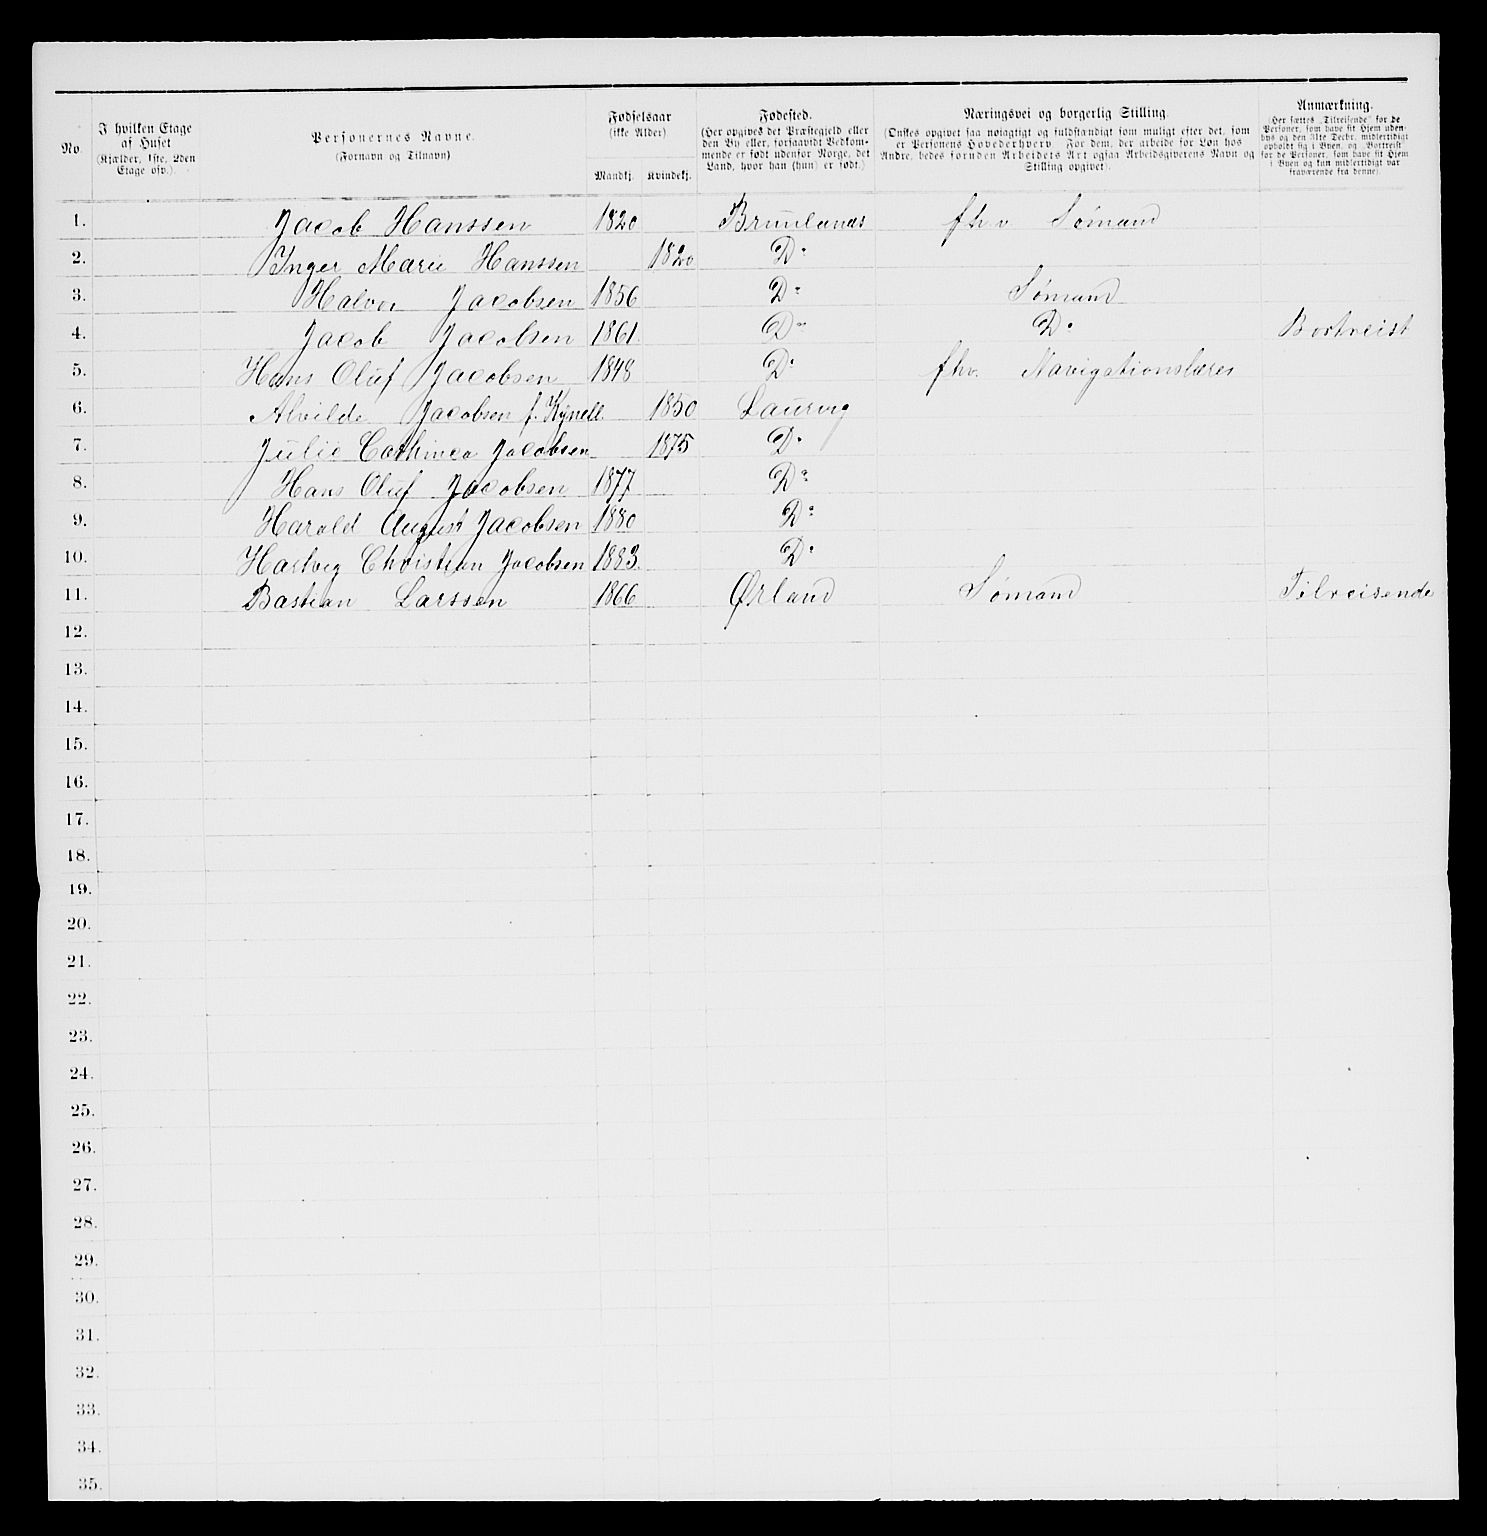 No.
I hvilken Etage af Huset
(Kjælder, 1ste, 2den Etage osv.).
Personernes Navne.
(Fornavn og Tilnavn)
Fødselsaar
(ikke Alder)
Mandkj. Kvindekj.
Fødested.
(Her opgives det Præstegjeld eller
den By eller, forsaavidt Vedkom-
mende er født udenfor Norge, det
Land, hvor han (hun) er født.)
Næringsvei og borgerlig Stilling.
(Ønskes opgivet saa nøiagtigt og fuldstændigt som muligt efter det, som
er Personens Hovederhverv. For dem, der arbeide for Løn hos
Andre, bedes foruden Arbeidets Art ogsaa Arbeidsgiverens Navn og
Stilling opgivet).
Anmærkning.
(Her sættes „Tilreisende“ for de
Personer, som have sit Hjem uden-
bys og den 31te Decbr. midlertidigt
opholdt sig i Byen, og „Bortreist“
for de Personer, som have sit Hjem
i Byen og kun midlertidigt var
fraværende fra denne).
1. Jacob Hanssen 1820 Brunlanæs fhv. Sømand
2. Inger Marie Hanssen 1820 Do
3. Halvor Jacobsen 1856 Do Sømand
4. Jacob Jacobsen 1861 Do Do Bortreist
5. Hans Oluf Jacobsen 1848 Do fhv. Navigationslærer
6. Alvilde Jacobsen f. Kynell 1850 Laurvig
7. Julie Cathinca Jacobsen 1875 Do
8. Hans Oluf Jacobsen 1877 Do
9. Harald August Jacobsen 1880 Do
10. Hartvig Christian Jacobsen 1883 Do
11. Bastian Larssen 1866 Ørland Sømand Tilreisende
12.
13.
14.
15.
16.
17.
18.
19.
20.
21.
22.
23.
24.
25.
26.
27.
28.
29.
30.
31.
32.
33.
34.
35.